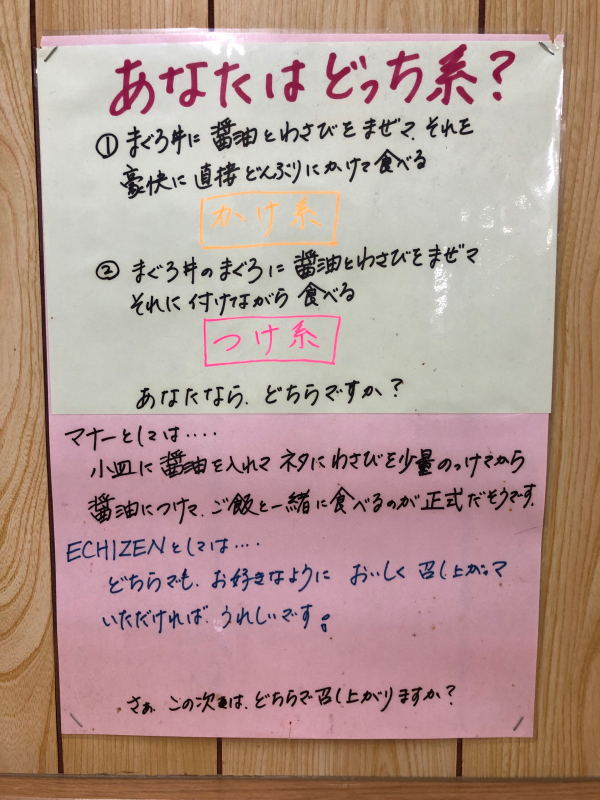 あなたはどっち系？
① まぐろ丼に 醤油とわさびをまぜて、それを
豪快に 直接どんぶりにかけて食べる
かけ系
② まぐろ丼のまぐろに 醤油とわさびをまぜて
それに付けながら 食べる
つけ系
あなたなら、どちらですか？
マナーとしては‥‥
小皿に醤油を入れて ネタにわさびを少量のっけてから
醤油につけて、ご飯と一緒に食べるのが正式だそうです。
ECHIZENとしては‥‥
どちらでも、お好きなように おいしく 召し上がって
いただければ、うれしいです。
さぁ、この次は、どちらで召し上がりますか？